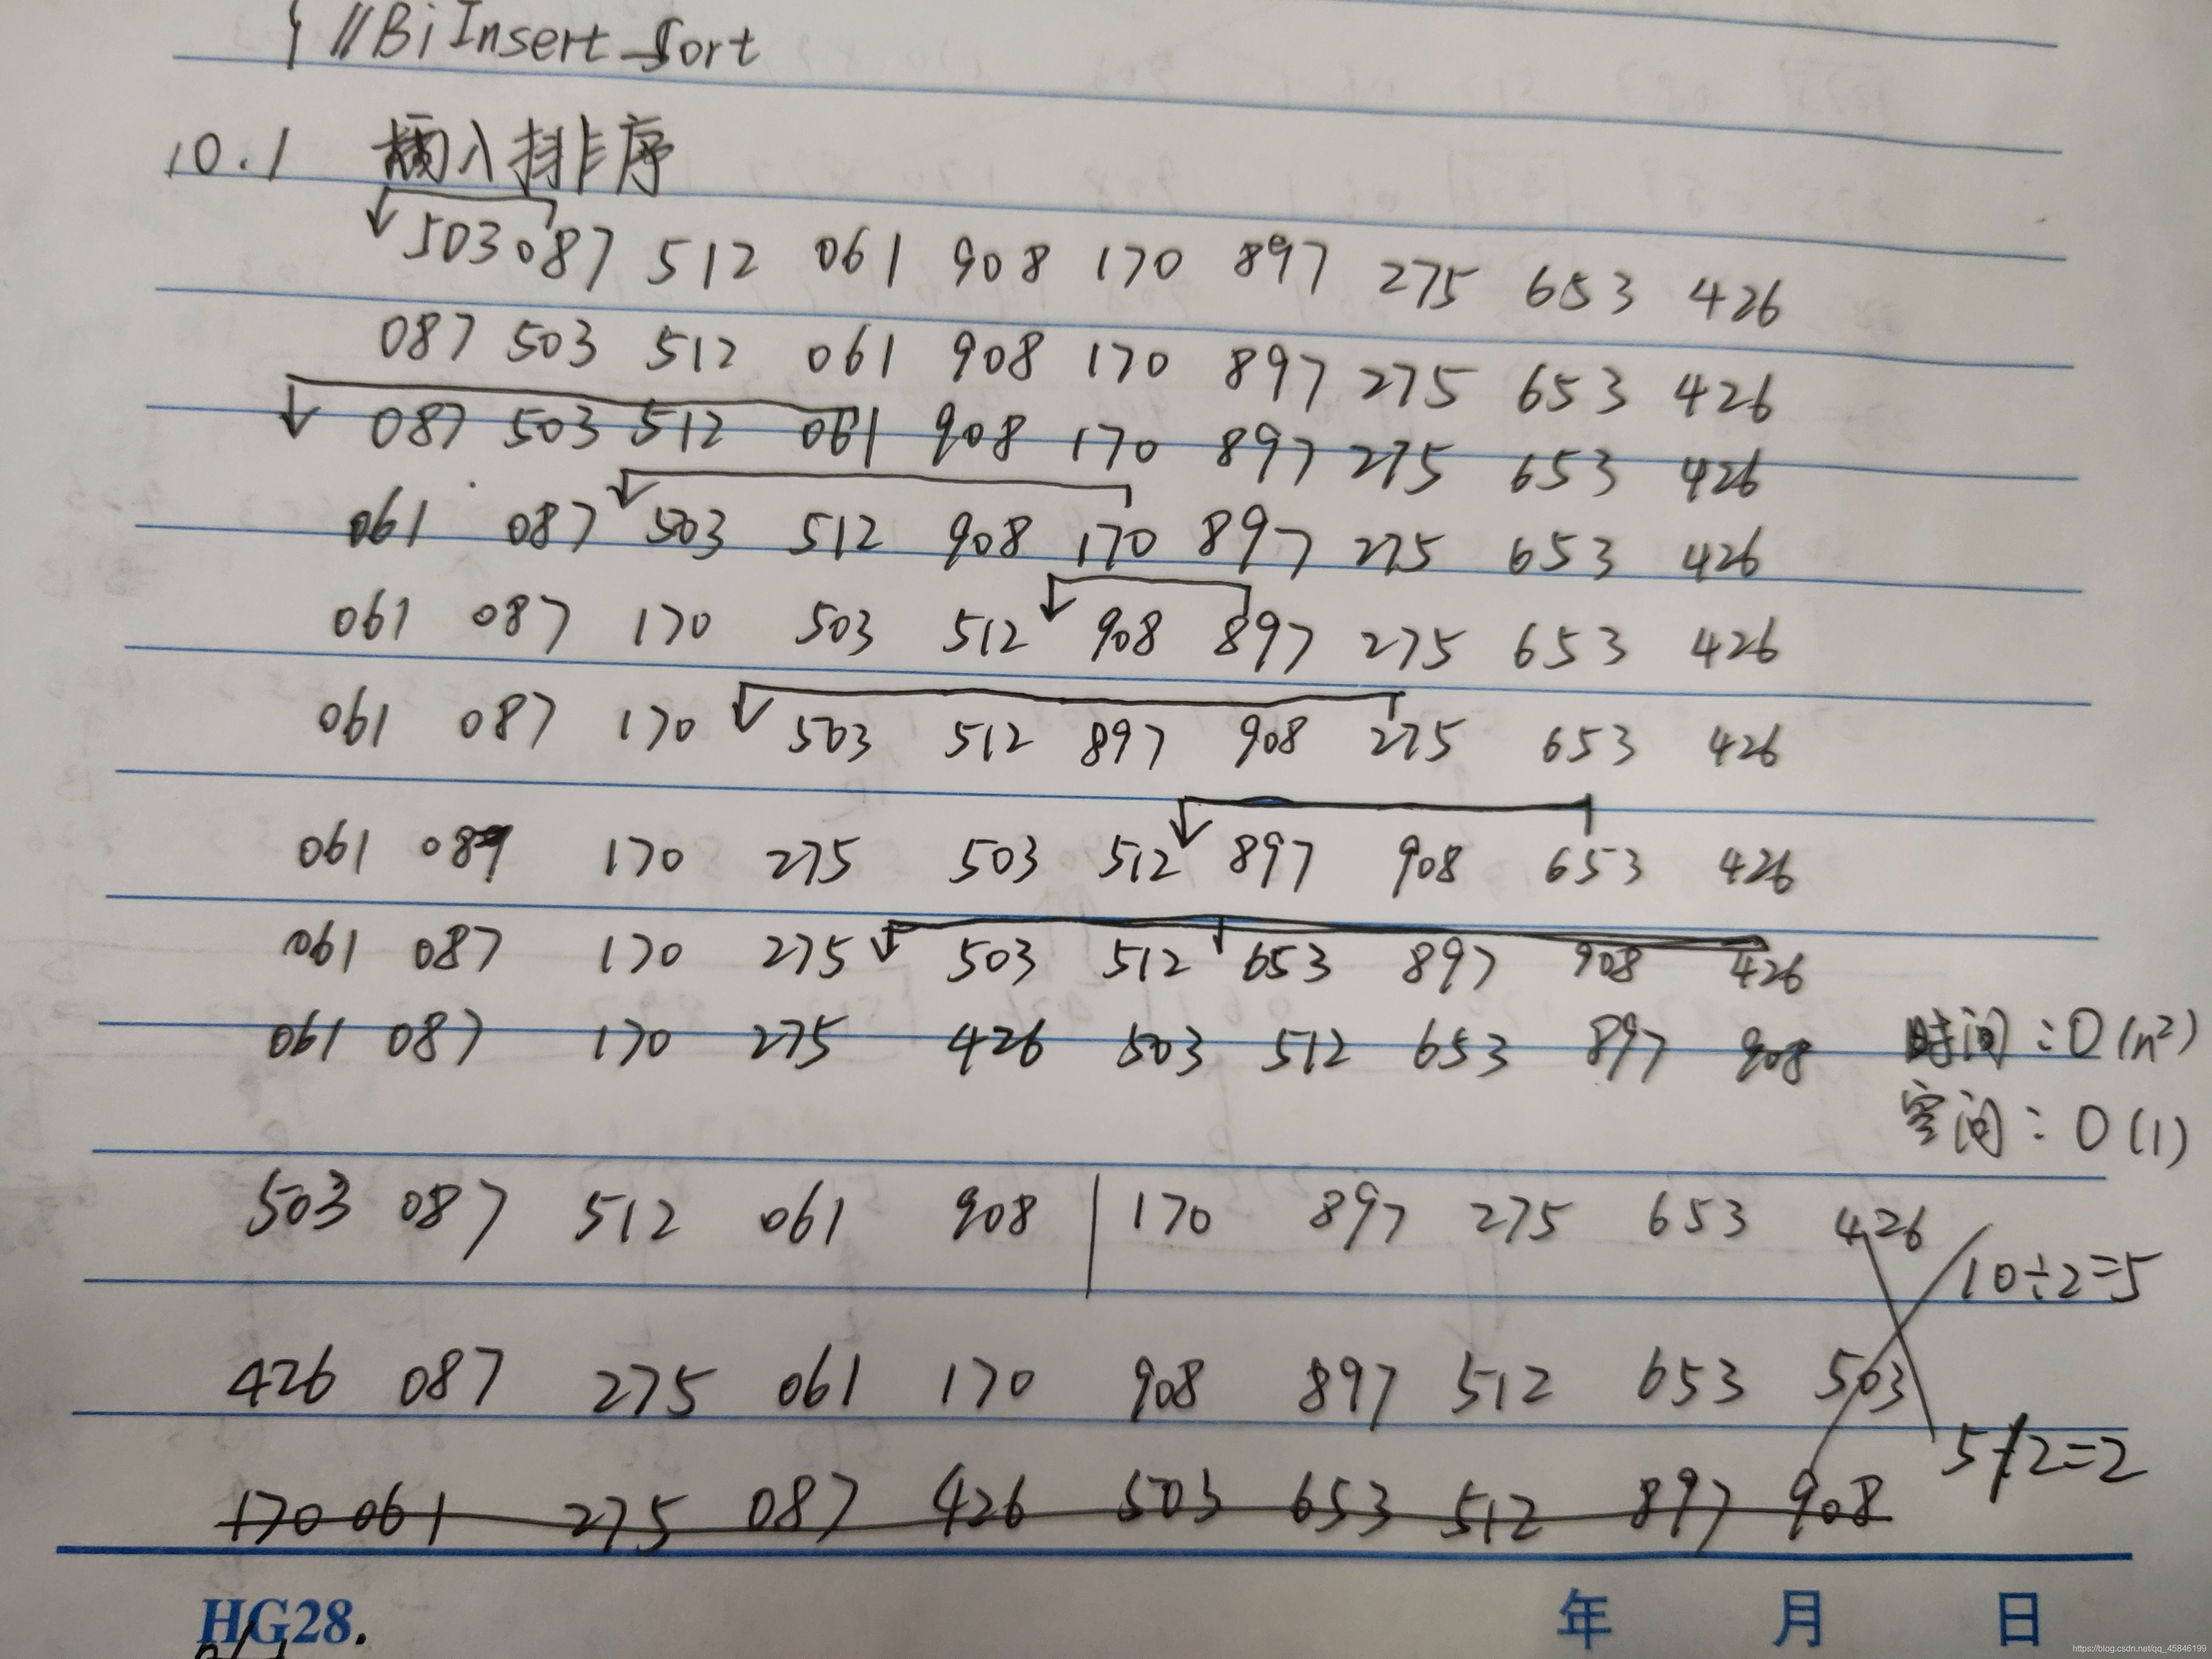 } //BiInsert_Sort
10.1 插入排序
503 087 512 061 908 170 897 275 653 426
087 503 512 061 908 170 897 275 653 426
087 503 512 061 908 170 897 275 653 426
061 087 503 512 908 170 897 275 653 426
061 087 170 503 512 908 897 275 653 426
061 087 170 503 512 897 908 275 653 426
061 087 170 275 503 512 897 908 653 426
061 087 170 275 503 512 653 897 908 426
061 087 170 275 426 503 512 653 897 908
时间:O(n²)
空间:O(1)
503 087 512 061 908 | 170 897 275 653 426
10÷2=5
426 087 275 061 170 908 897 512 653 503
5/2=2
170 061 275 087 426 503 653 512 897 908
HG28.
年 月 日
https://blog.csdn.net/qq_45846199